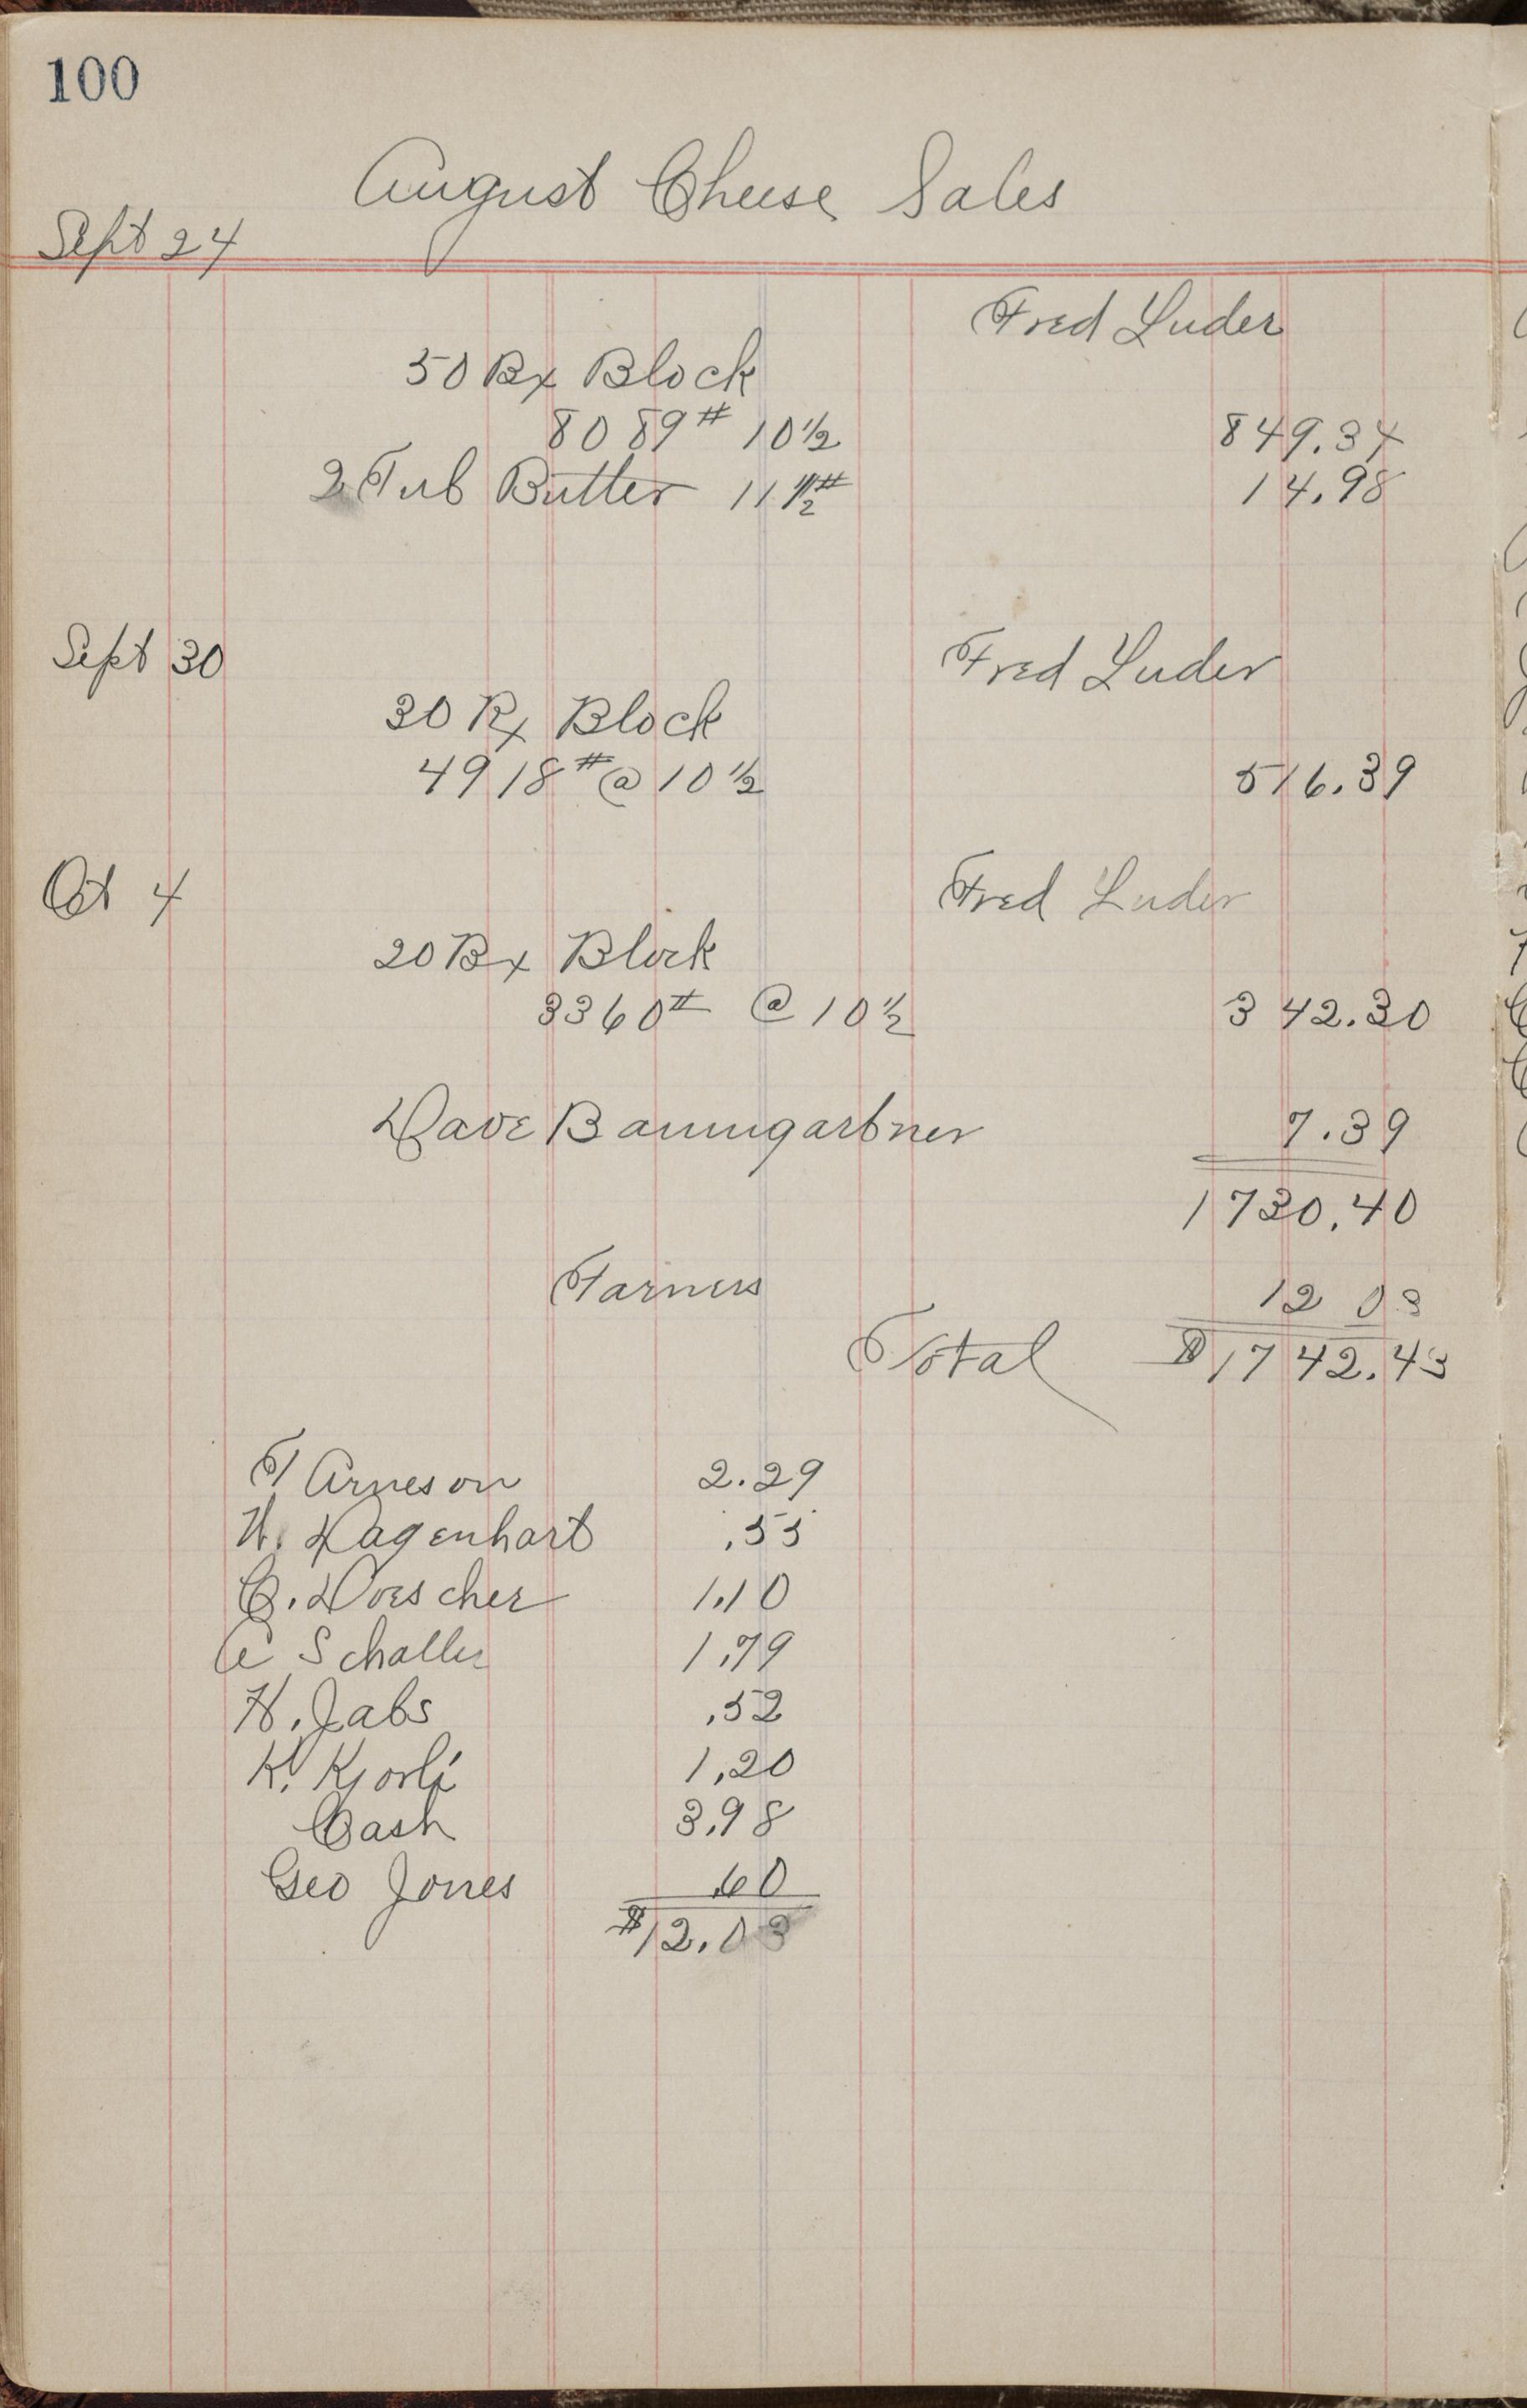 100
August Cheese Sales
Sept 24
Fred Luder
50 Bx Block
8089# 10½ 849.34
2 Tub Butter 11 ½# 14.98
Sept 30 Fred Luder
30 Bx Block
4918# @ 10½ 516.39
Oct 4 Fred Luder
20 Bx Block
3360# @ 10½ 342.30
Dave Baumgartner 7.39
1730.40
Farmers 12 03
Total $1742.43
T Arneson 2.29
H. Dagenhart .55
C. Doescher 1.10
A Schaller 1.79
H. Jabs .52
K. Kjorli 1.20
Cash 3.98
Geo Jones .60
$12.03